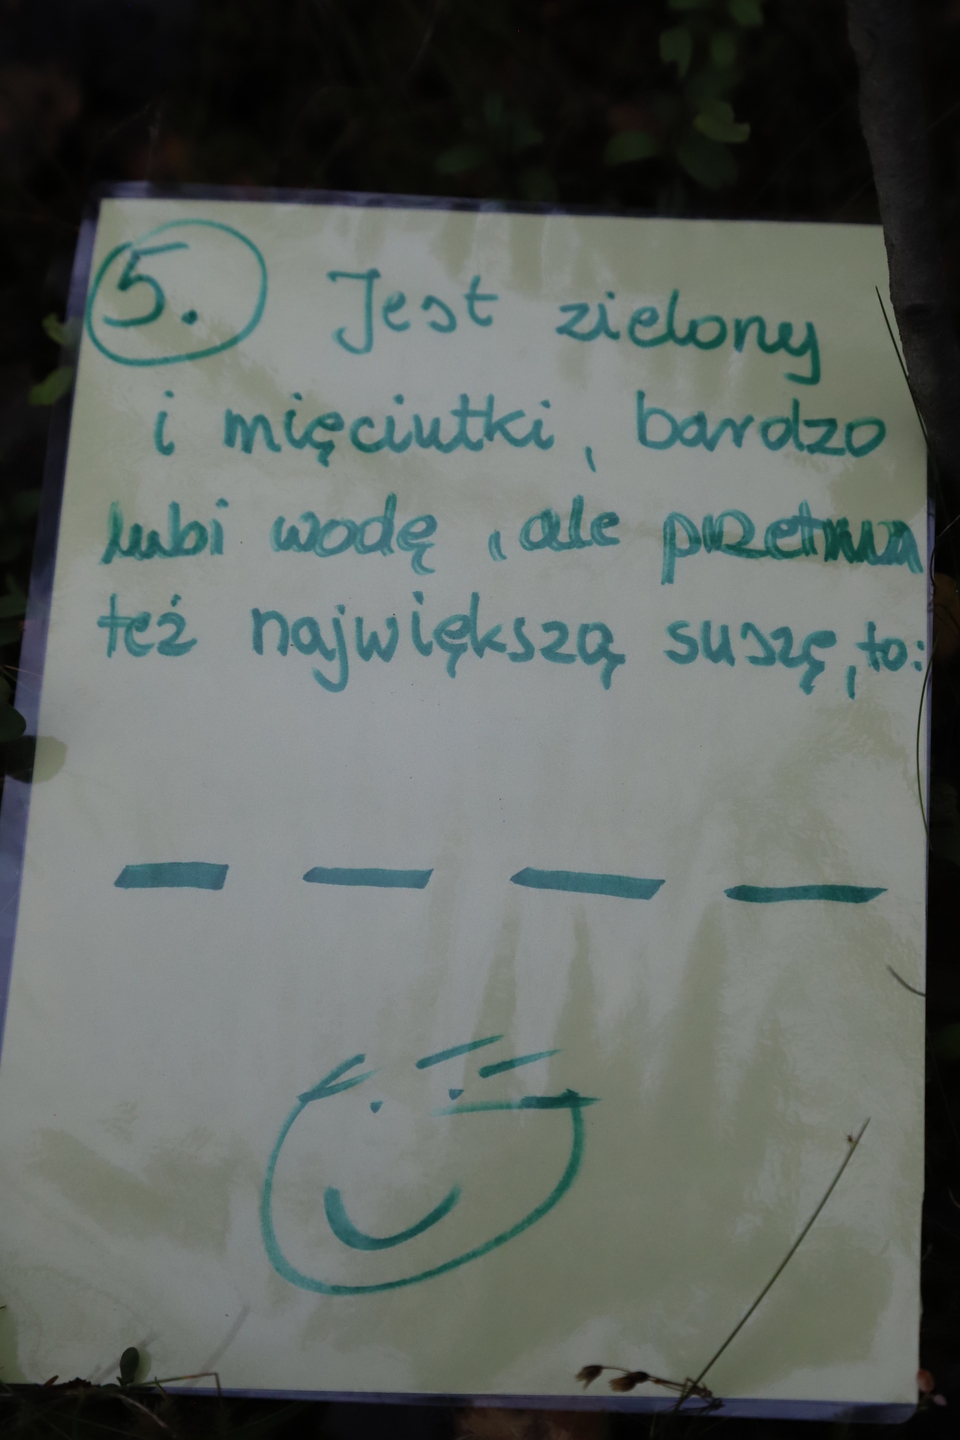 5. Jest zielony
i mięciutki, bardzo
lubi wodę, ale przetrwa
też największą suszę, to: